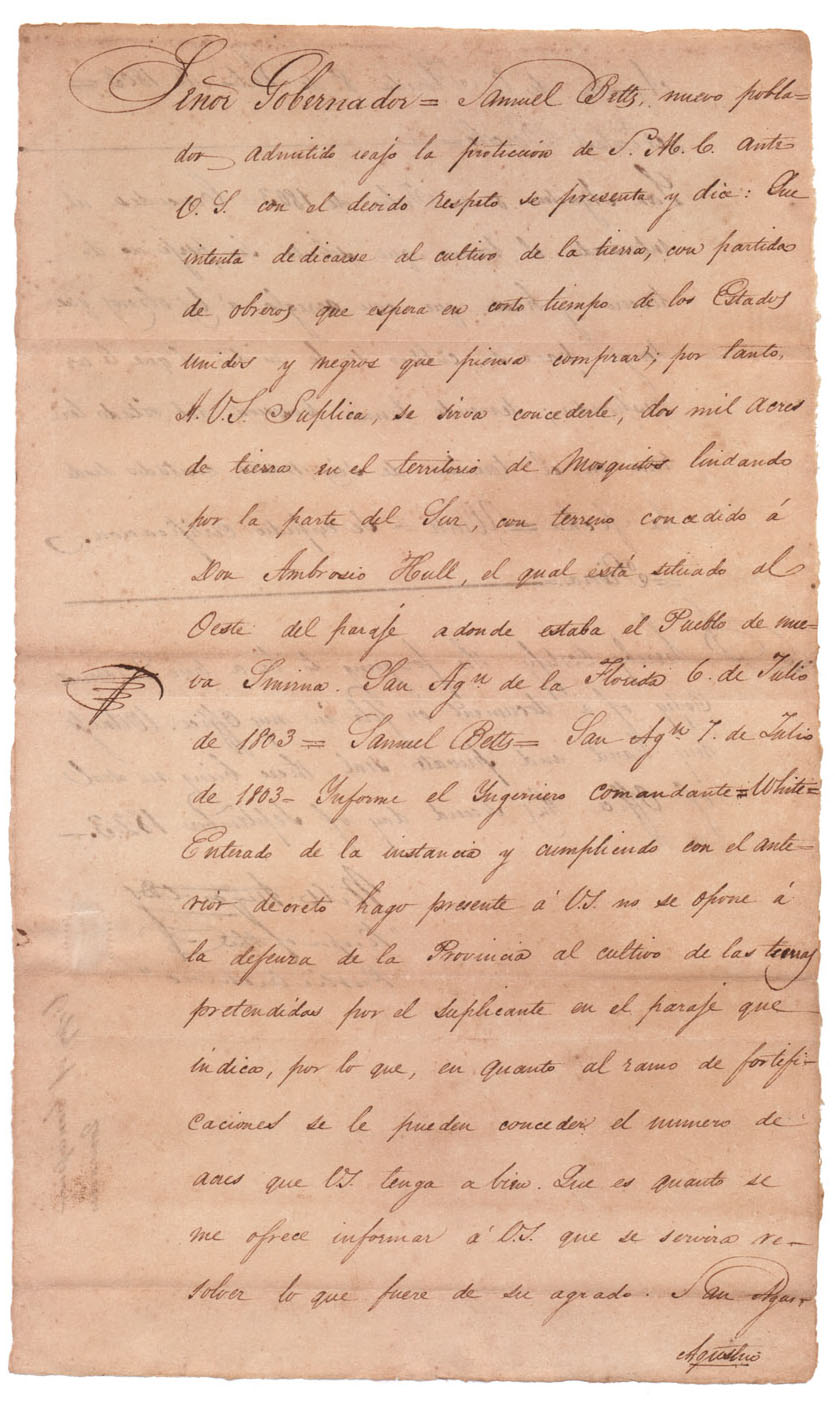 Señor Gobernador = Samuel Betts, nuevo pobla=
dor admitido vajo la protección de S. M. C. ante
V. S. con el devido respeto se presenta y dice: Que
intenta dedicarse al cultivo de la tierra, con partida
de obreros que espera en corto tiempo de los Estados
Unidos y negros que piensa comprar; por tanto,
A. V. S. Suplica, se sirva concederle, dos mil acres
de tierra en el territorio de Mosquitos lindando
por la parte del Sur, con terreno concedido á
Don Ambrosio Hull, el qual está situado al
Oeste del paraje adonde estaba el Pueblo de nue-
va Smirna. San Agn de la Florida 6. de Julio
de 1803 = Samuel Betts = San Agn 7. de Julio
de 1803 - Informe el Yngeniero comandante = White =
Enterado de la instancia y cumpliendo con el ante-
rior decreto hago presente á V.S. no se opone á
la defenza de la Provincia al cultivo de las tierras
pretendidas por el suplicante en el paraje que
indica, por lo que, en quanto al ramo de fortifi-
caciones se le pueden conceder el numero de
acres que V.S. tenga a bien. Que es quanto se
me ofrece informar á V.S. que se servira re-
solver lo que fuere de su agrado. San Agus-
Agustin